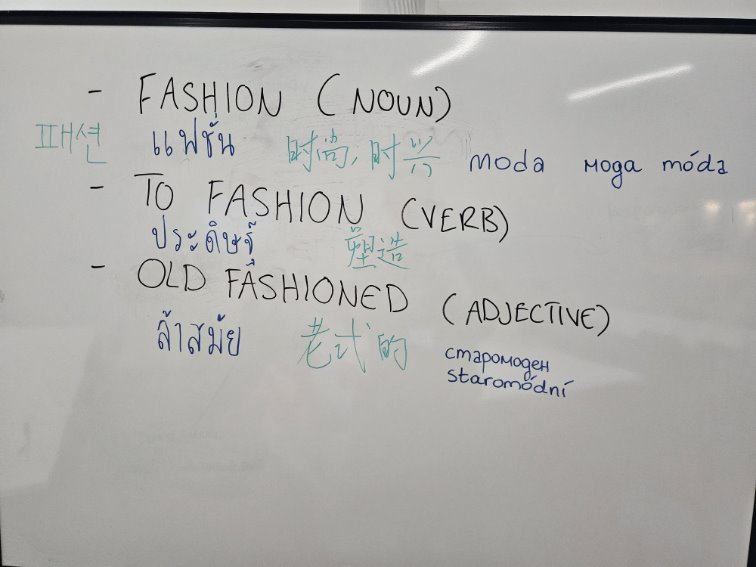 - FASHION (NOUN)
패션 แฟชั่น 时尚, 时兴 moda мода móda
- TO FASHION (VERB)
ประดิษฐ์ 塑造
- OLD FASHIONED (ADJECTIVE)
ล้าสมัย 老式的 старомоден
staromódní